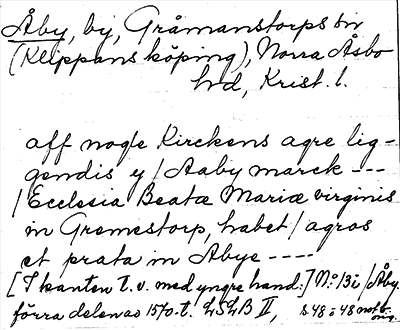 Åby, by, Gråmanstorps sn
(Klippans köping), Norra Åsbo
hd, Krist. l.
aff nogle Kirckens agre lig-
gendis y / Aaby marck ---
/ Ecclesia Beatæ Mariæ virginis
in Gremestorp, habet / agros
et prata in Abye ----
[I kanten t. v. med yngre hand:] No 13 i / Åby.
förra delen av 1570-t. LSLB II, s 48 o 48 not